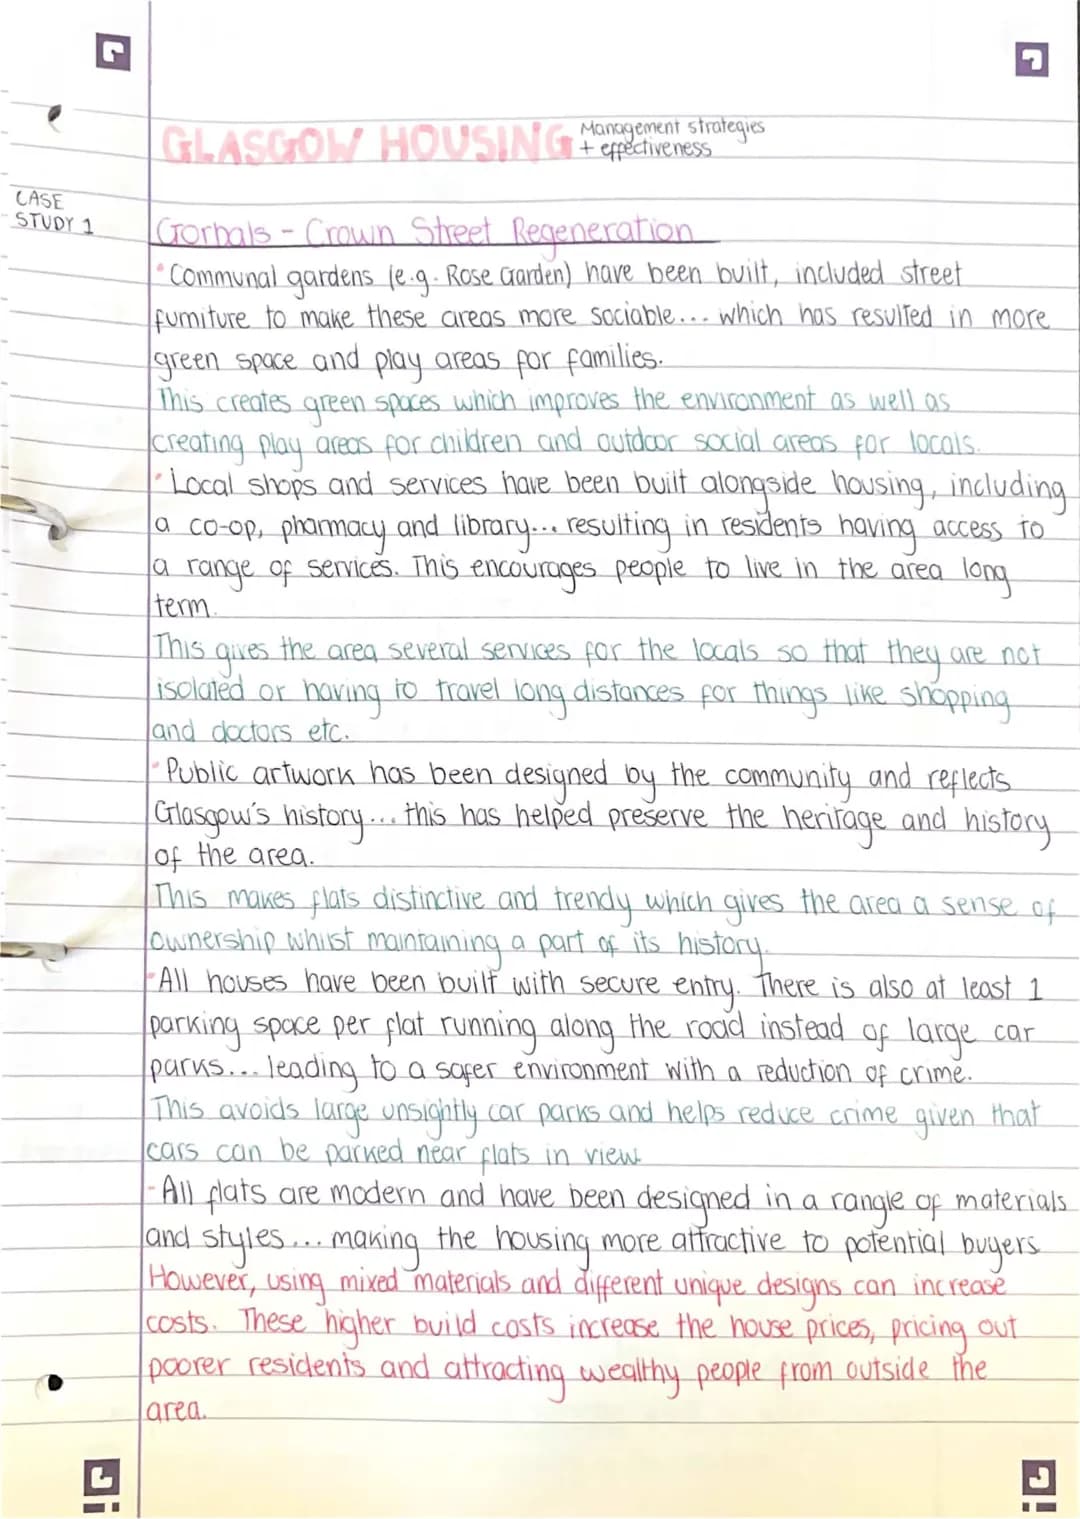 GLASGOW HOUSING Management strategies
+ effectiveness
CASE
STUDY 1
Gorbals - Crown Street Regeneration
• Communal gardens (e.g. Rose Garden) have been built, included street
furniture to make these areas more sociable... which has resulted in more
green space and play areas for families.
This creates green spaces which improves the environment as well as
creating play areas for children and outdoor social areas for locals.
• Local shops and services have been built alongside housing, including
a co-op, pharmacy and library... resulting in residents having access to
a range of services. This encourages people to live in the area long
term.
This gives the area several services for the locals so that they are not
isolated or having to travel long distances for things like shopping
and doctors etc.
• Public artwork has been designed by the community and reflects
Glasgow's history... this has helped preserve the heritage and history
of the area.
This makes flats distinctive and trendy which gives the area a sense of
ownership whilst maintaining a part of its history.
• All houses have been built with secure entry. There is also at least 1
parking space per flat running along the road instead of large car
parks... leading to a safer environment with a reduction of crime.
This avoids large unsightly car parks and helps reduce crime given that
cars can be parked near flats in view
- All flats are modern and have been designed in a rangle of materials
and styles... making the housing more attractive to potential buyers
However, using mixed materials and different unique designs can increase
costs. These higher build costs increase the house prices, pricing out
poorer residents and attracting wealthy people from outside the
area.